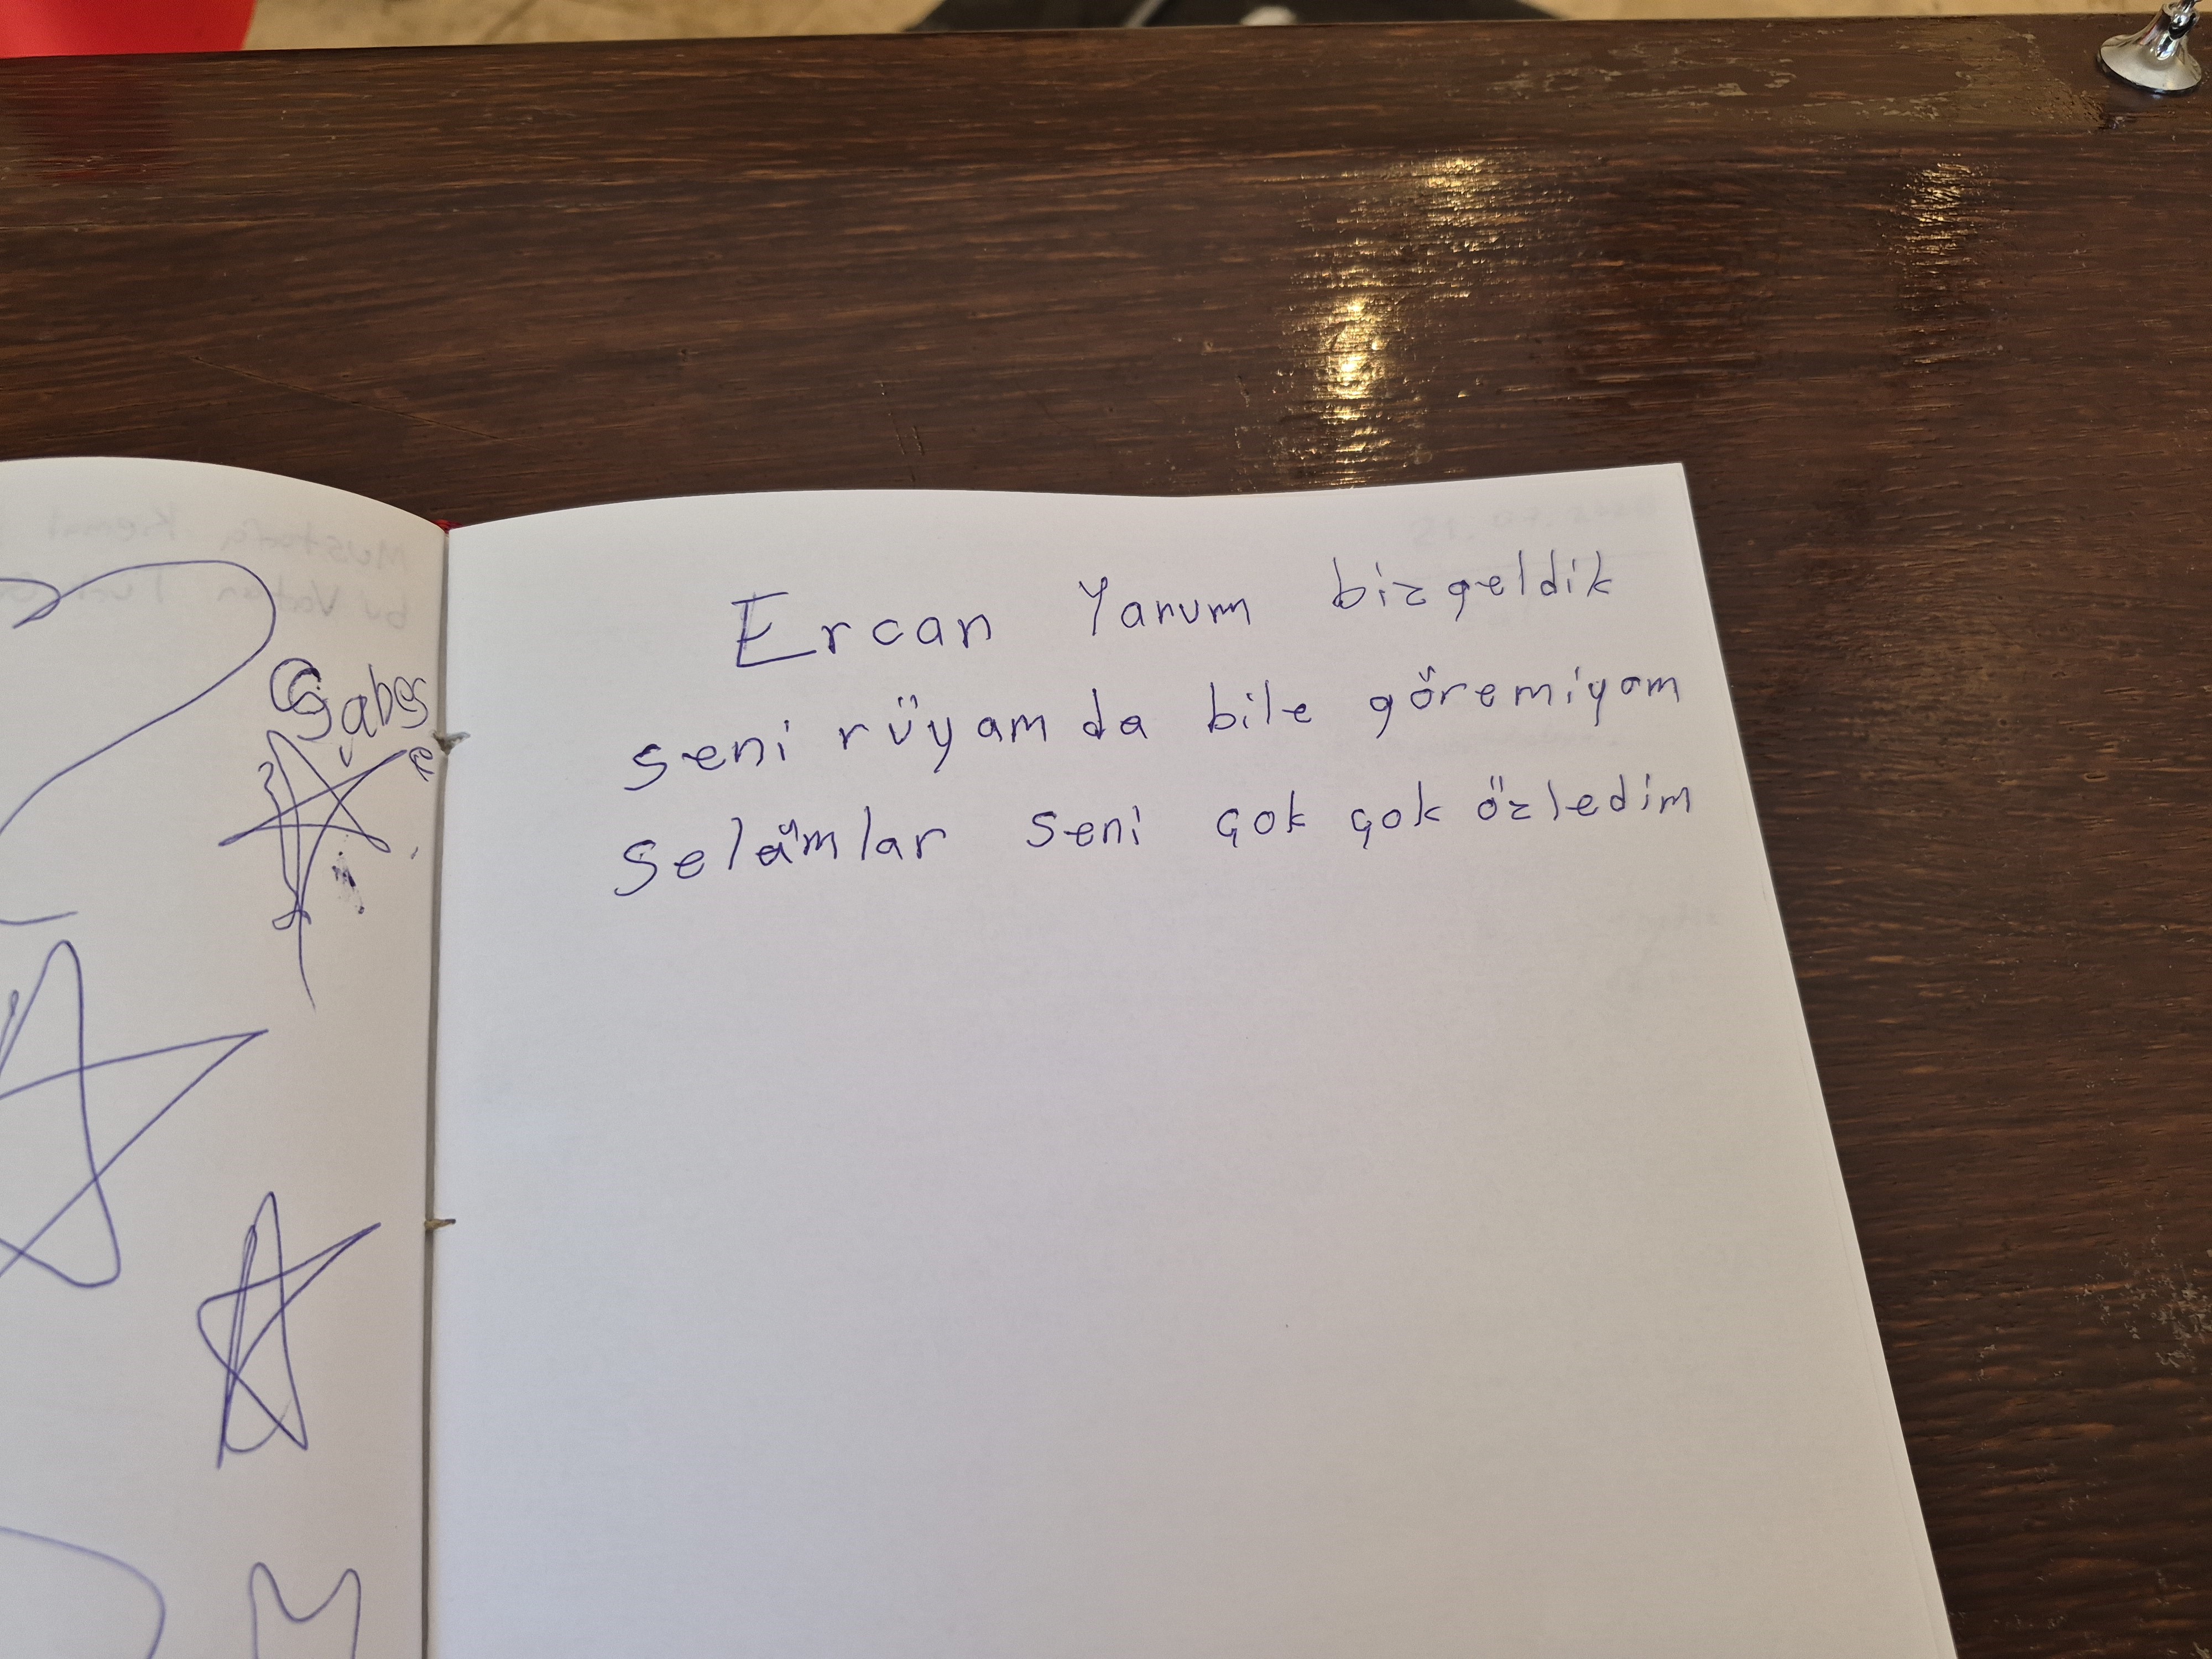 Ercan Yarum bizgeldik
seni rüyam da bile göremiyom
Selâmlar seni çok çok özledim